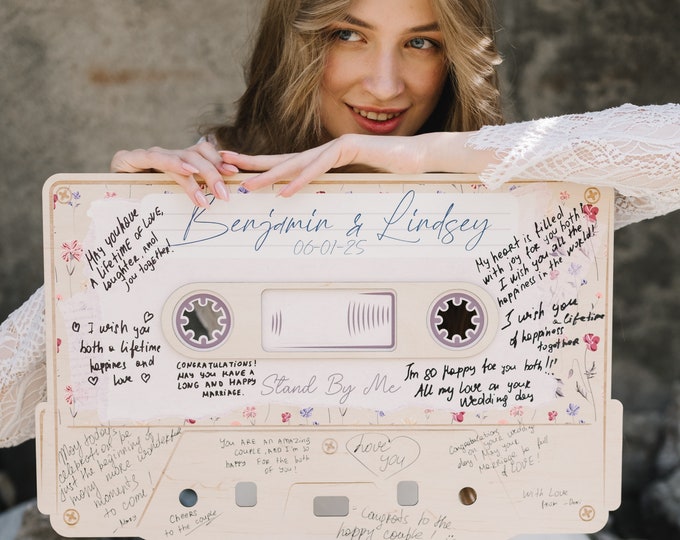 Benjamin & Lindsey
06-01-25
May you have
a lifetime of love,
laughter, and
joy together!
My heart is filled
with joy for you both!
I wish you all the
happiness in the world!
I wish you
both a lifetime
happiness and
love
I wish you
a lifetime
of happiness
together
Congratulations!
May you have a
long and happy
marriage.
Stand By Me
I'm so happy for you both!!!
All my love on your
Wedding day
May today's
celebration be
just the beginning of
many more wonderful
moments
to come!
You are an amazing
couple, and I'm so
happy for the both
of you!
love
you
Congratulations
on your wedding
day. May your
Marriage be full
of LOVE!
With Love
Cheers
to the couple
Congrats to the
happy couple!